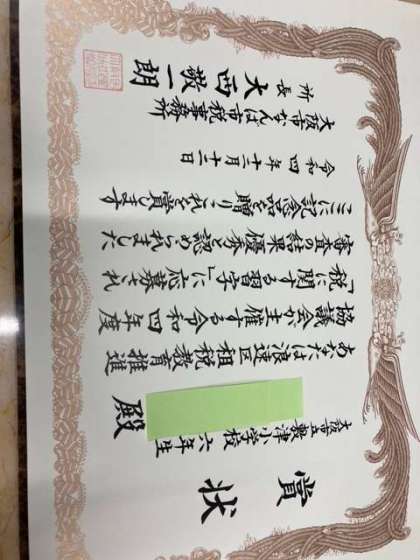 賞状
大阪市立敷津小学校 六年生
殿
あなたは浪速区租税教育推進
協議会が主催する令和四年度
「税に関する習字」に応募され
審査の結果優秀と認められました
ここに記念品を贈りこれを賞します
令和四年十二月十二日
大阪市なんば市税事務所
所長 大西敬一朗